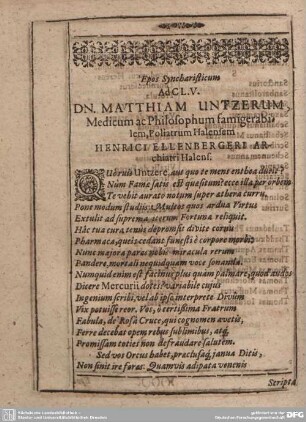 Epos Syncharisticum
Ad CL. V.
DN. MATTHIAM UNTZERUM,
Medicum ac Philosophum famigerabi-
lem, Poliatrum Halensem
HENRICI ELLENBERGERI AR-
chiatri Halens.
Untzere, quo te mens enthea
Num Fame satis est quæsitum ite ille per orbem
Te vehit aurato notum super athera curru.
Pone modum studiis, Multos quos ardua Virtus
Extulit ad suprema, iterum Fortuna reliquit.
Hac tua cura tenus depromsit divite cornu
Pharmaca, queis cedant funesti è corpore morbi:
Nunc majora paras nobis miracula rerum
Pandere, mortali nequidquam voce sonanda.
Numquid enim est facinus plus quàm palmare, quod audes
Dicere Mercurii dotes? variabile cujus
Ingenium scribi, vel ab ipso interprete Divûm
Vix potuisse reor. Vos, ô certissima Fratrum
Fabula, de Rosâ Cruce, qui cognomen avetis,
Ferre decebat opem rebus sublimibus, atq;
Promissam toties non defraudare salutem.
Sed vos Orcus habet, practusaq; janua Ditis,
Non sinit ire foras. Quamvis adipata venenis
Scripta